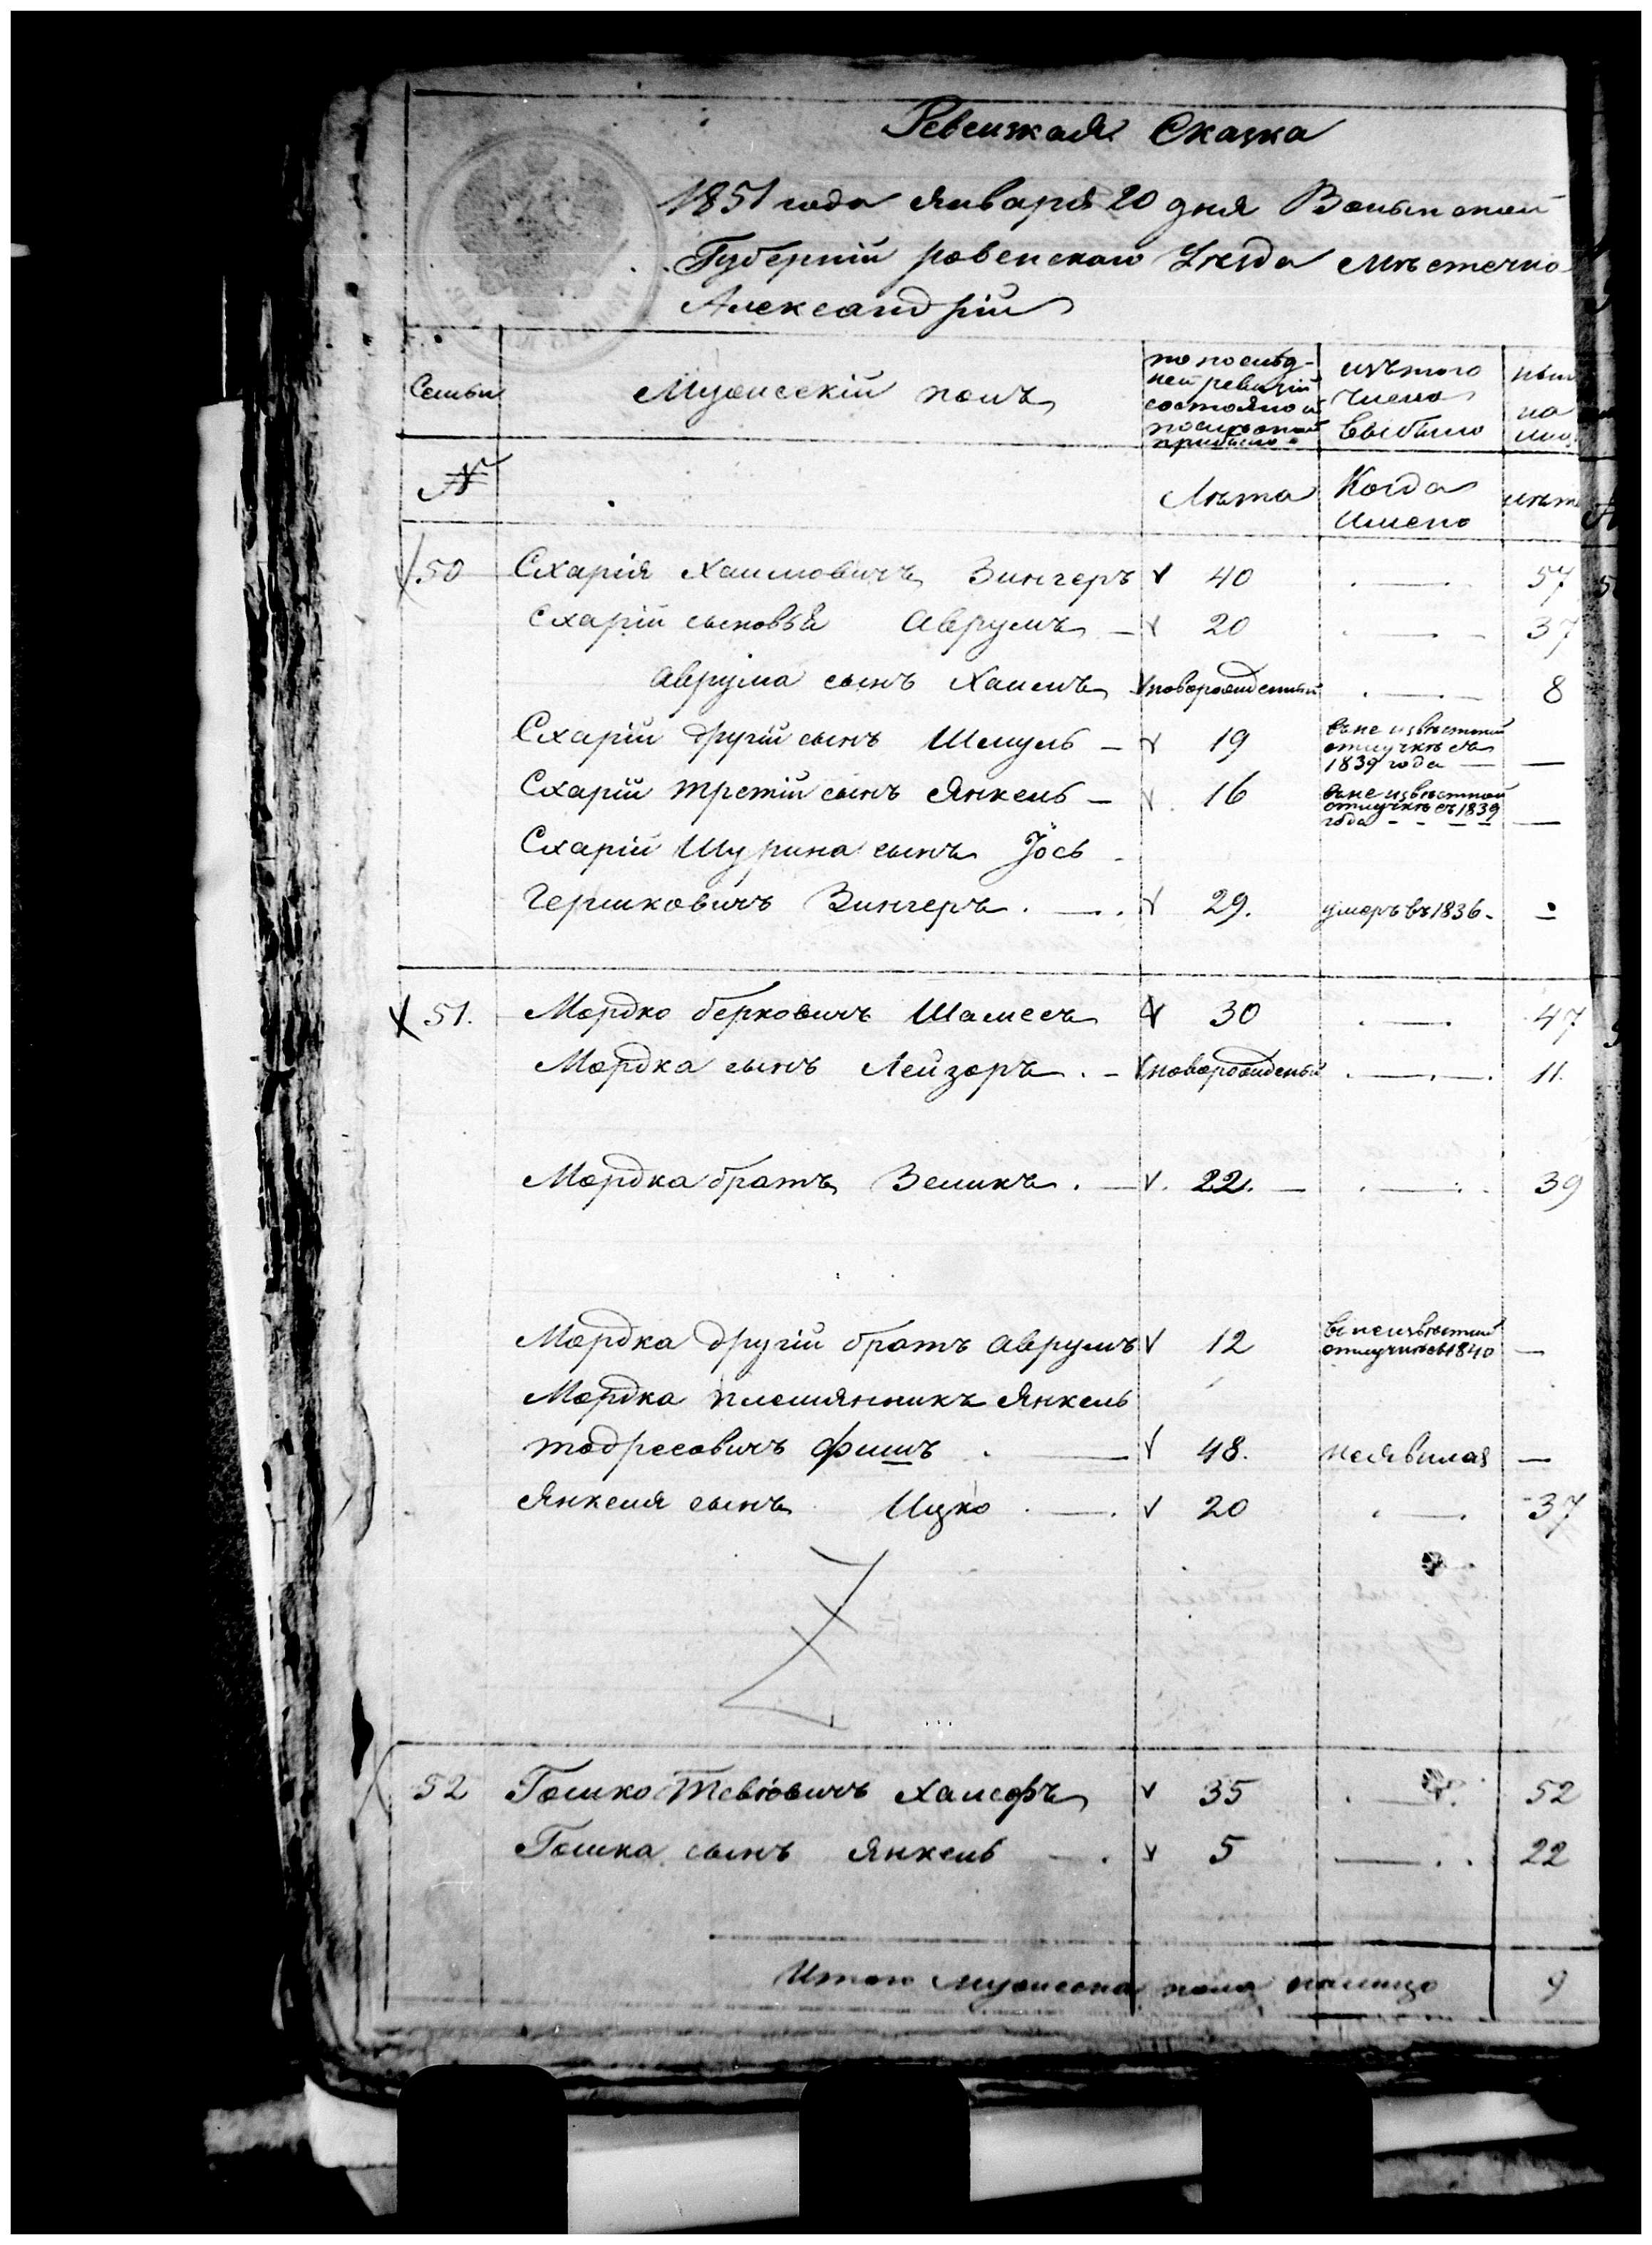 Ревизская Сказка
1851 года января 20 дня Волынской
Губернiи ровенскаго Уезда местечко
Александрiи
Семьи
Мужескiй полъ
по послед-
ней ревизiи
состояло и
после оной
прибыло
изъ того
числа
выбыло
ныне
на
лицо
№
Лета
Когда
Имено
лета
50 Схарiя Хаимовичъ Зингеръ 40 57
Схарiи сыновья Аврумъ 20 37
Аврума сынъ Хаимъ новорожденный 8
Схарiи другiй сынъ Шмуль 19 въ не известной
отлучке съ
1839 года
Схарiи третiй сынъ Янкель 16 въ не известной
отлучке съ 1839
года
Схарiи Шурина сынъ Iось
Гершковичъ Зингеръ 29. умеръ въ 1836.
51. Мордко Берковичъ Шамесъ 30 47
Мордка сынъ Лейзоръ новорожденый 11.
Мордка братъ Зеликъ 22. 39
Мордка другiй братъ Аврумъ 12 въ неизвестной
отлучке съ 1840
Мордка племянникъ Янкель
тодресовичъ Фишъ 48. неявился
Янкеля сынъ Ицко 20 37
52 Гошко Тевiовичъ Хамефъ 35 52
Гошка сынъ Янкель 5 22
Итого мужеска пола налицо 9